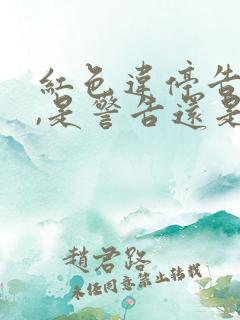 紅色違停告
,是警告還是
趙君路
未經同意禁止轉載